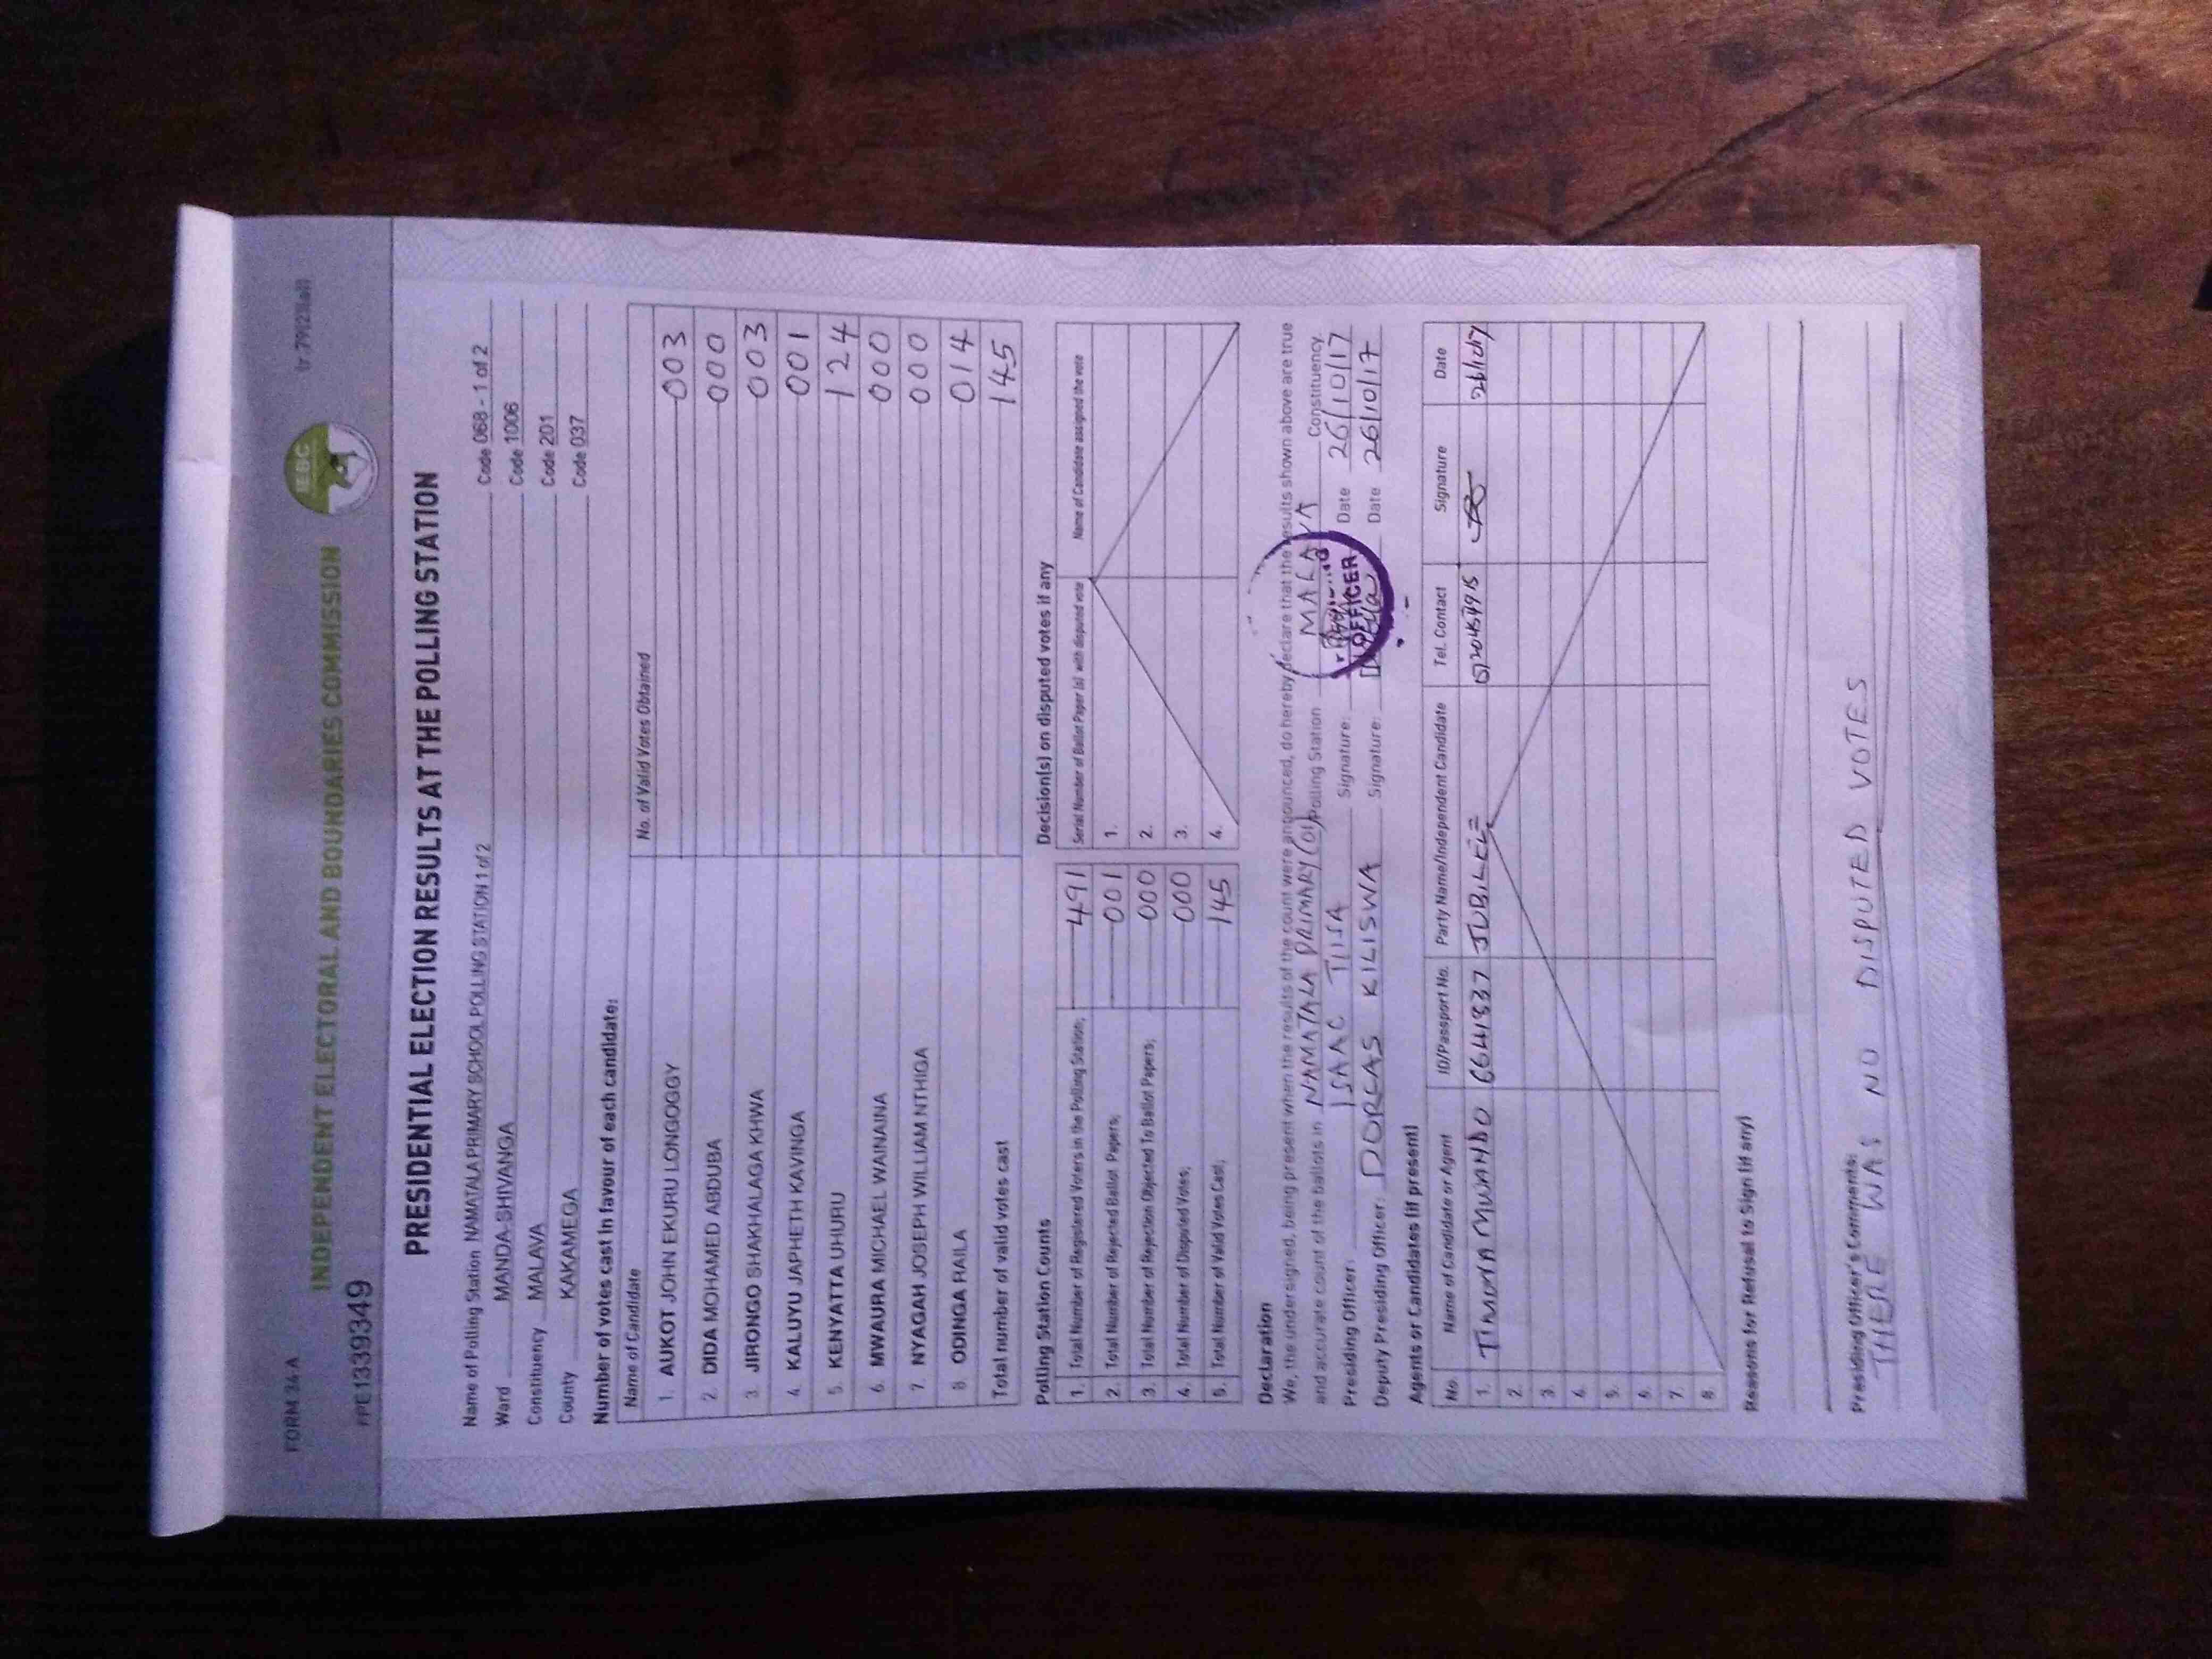 FORM 34A
INDEPENDENT ELECTORAL AND BOUNDARIES COMMISSION
IEBC
PPE1339349
PRESIDENTIAL ELECTION RESULTS AT THE POLLING STATION
Name of Polling Station NAMATALA PRIMARY SCHOOL POLLING STATION 1 of 2 Code 068 - 1 of 2
Ward MANDA-SHIVANGA Code 1006
Constituency MALAVA Code 201
County KAKAMEGA Code 037
Number of votes cast in favour of each candidate:
Name of Candidate No. of Valid Votes Obtained
1. AUKOT JOHN EKURU LONGOGGY 003
2. DIDA MOHAMED ABDUBA 000
3. JIRONGO SHAKHALAGA KHWA 003
4. KALUYU JAPHETH KAVINGA 001
5. KENYATTA UHURU 124
6. MWAURA MICHAEL WAINAINA 000
7. NYAGAH JOSEPH WILLIAM NTHIGA 000
8. ODINGA RAILA 014
Total number of valid votes cast 145
Polling Station Counts
1. Total Number of Registered Voters in the Polling Station; 491
2. Total Number of Rejected Ballot Papers; 001
3. Total Number of Rejection Objected To Ballot Papers; 000
4. Total Number of Disputed Votes; 000
5. Total Number of Valid Votes Cast; 145
Decision(s) on disputed votes if any
Serial Number of Ballot Paper (s) with disputed vote Name of Candidate assigned the vote
1.
2.
3.
4.
Declaration
We, the undersigned, being present when the results of the count were announced, do hereby declare that the results shown above are true
and accurate count of the ballots in NAMATALA PRIMARY (01) Polling Station MALAVA Constituency.
Presiding Officer: ISAAC TIISA Signature: Date 26/10/17
Deputy Presiding Officer: DORCAS KILISWA Signature: Date 26/10/17
OFFICER
Agents or Candidates (if present)
No. Name of Candidate or Agent ID/Passport No. Party Name/Independent Candidate Tel. Contact Signature Date
1. MWANDO JUBILEE
2.
3.
4.
5.
6.
7.
8.
Reasons for Refusal to Sign (if any)
Presiding Officer's Comments:
THERE WAS NO DISPUTED VOTES